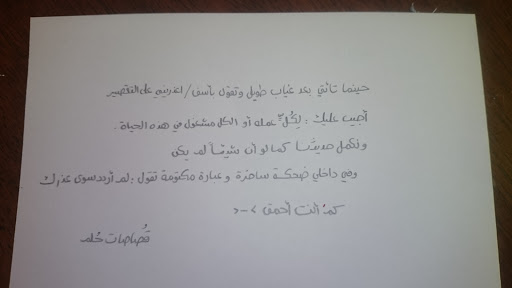 حينما تأتي بعد غياب طويل وتقول بأسف / اعذريني على التقصير
أجيب عليك : لِكُلٍّ عمله أو الكل مشغول في هذه الحياة .
ونكمل حديثنا كما لو أن شيئًا لم يكن
وفي داخلي ضحكة ساخرة وعبارة مكتومة تقول : لم أرد سوى عذرك
كم أنت أحمق >-<
قُصاصات حُلم